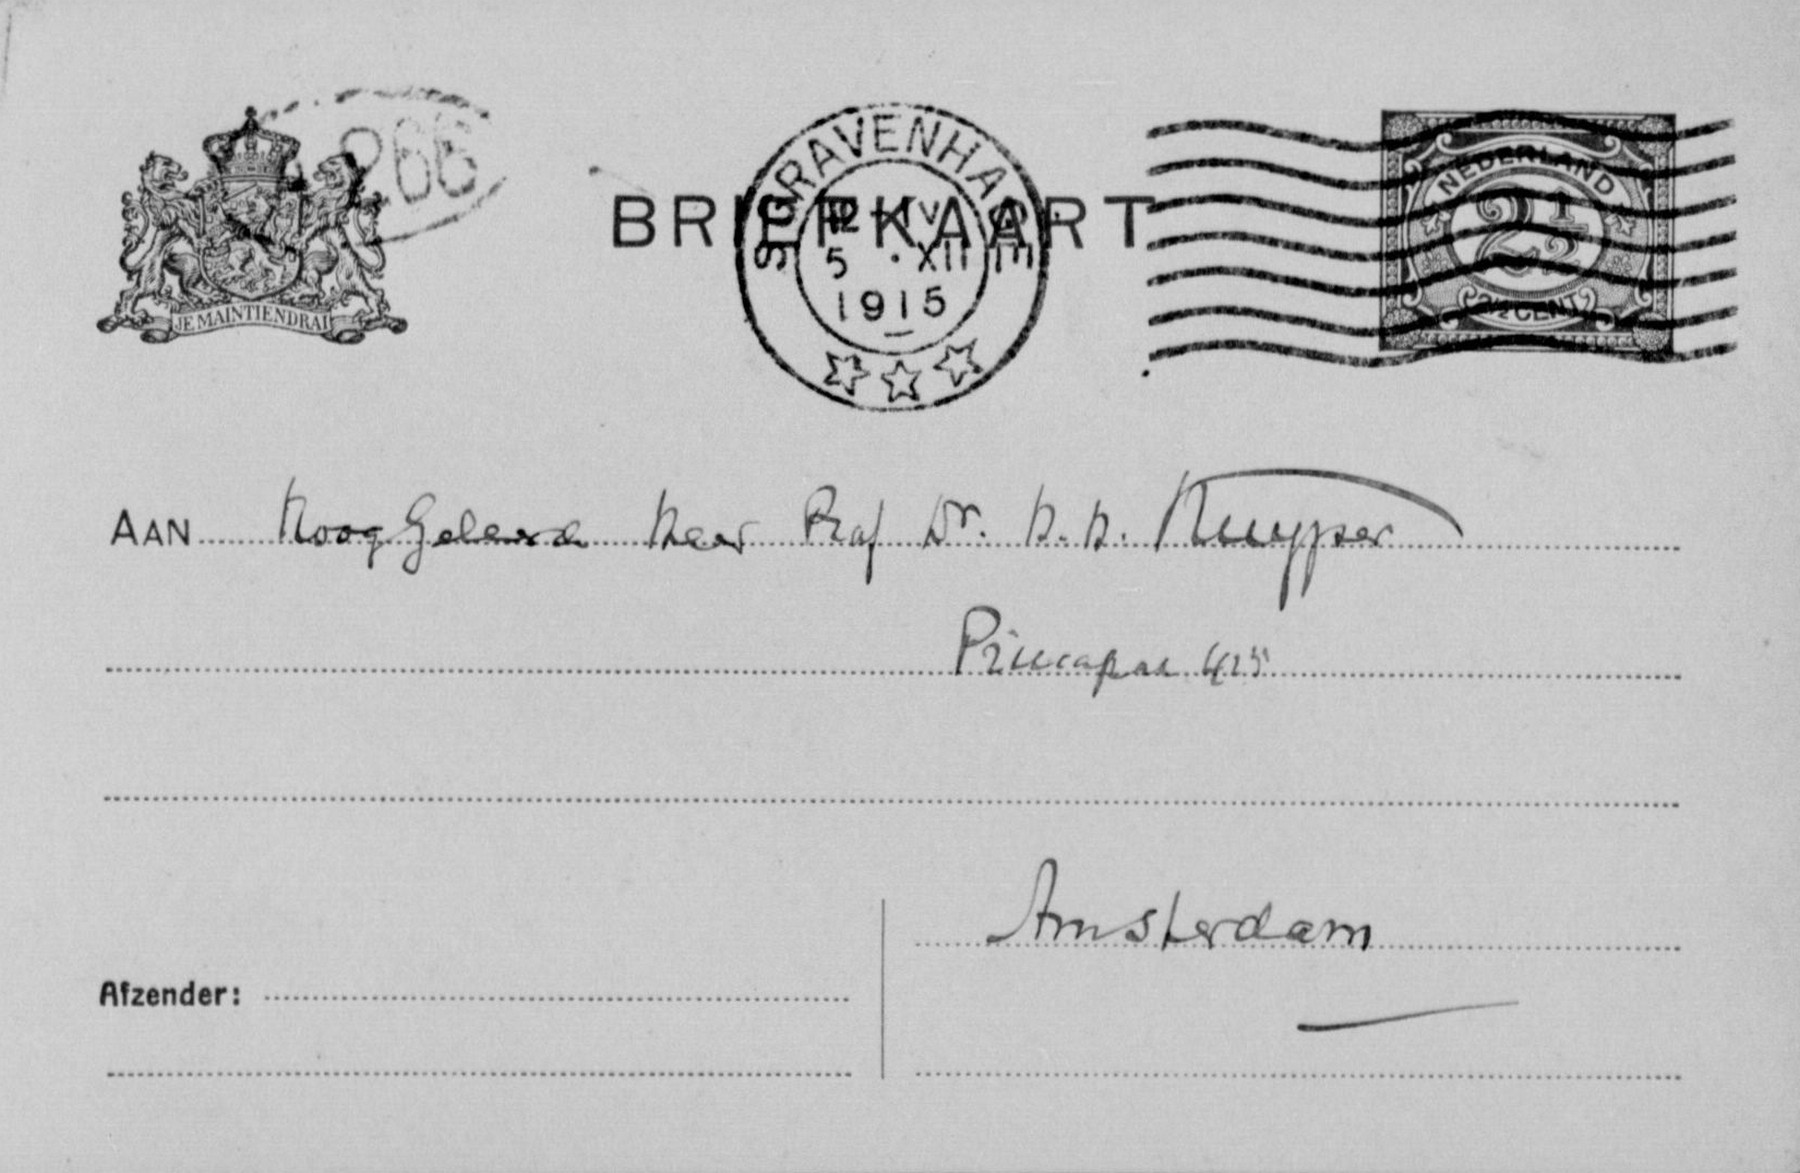 266
JE MAINTIENDRAI
BRIEFKAART
'S GRAVENHAGE
12 - IV
5 · XII
1915
NEDERLAND
2½
2½ CENT
AAN Hoog Geleerde Heer Prof Dr. H. H. Kuyper
425
Amsterdam
Afzender: